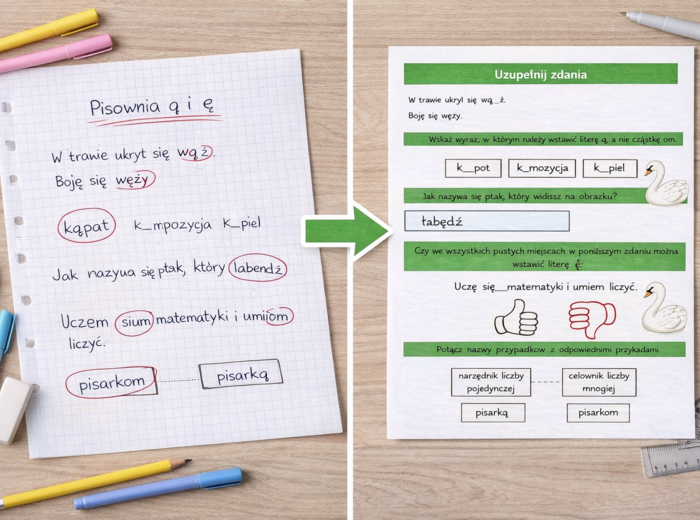 Pisownia ą i ę
W trawie ukryt się wąż.
Boję się węży
kąpat k_mpozycja k_piel
Jak nazyua się ptak, który labendź
Uczem sium matematyki i umiom
liczyć.
pisarkom pisarką
Uzupełnij zdania
W trawie ukryl się wą_ż.
Boje się węzy.
Wskaż wyraz, w którym należy wstawić literę ą, a nie cząstkę om.
k__pot k_mozycja k__piel
Jak nazywa się ptak, który widissz na obrazku?
łabędź
Czy we wszystkich pustych miejscach w poniższym zdaniu można
wstawić literę ę:
Uczę się__matematyki i umiem liczyć.
Połącz nazwy przypadkow z odpowiednimi przykadami.
narzędnik liczby
pojedynczej
celownik liczby
mnogiej
pisarką pisarkom